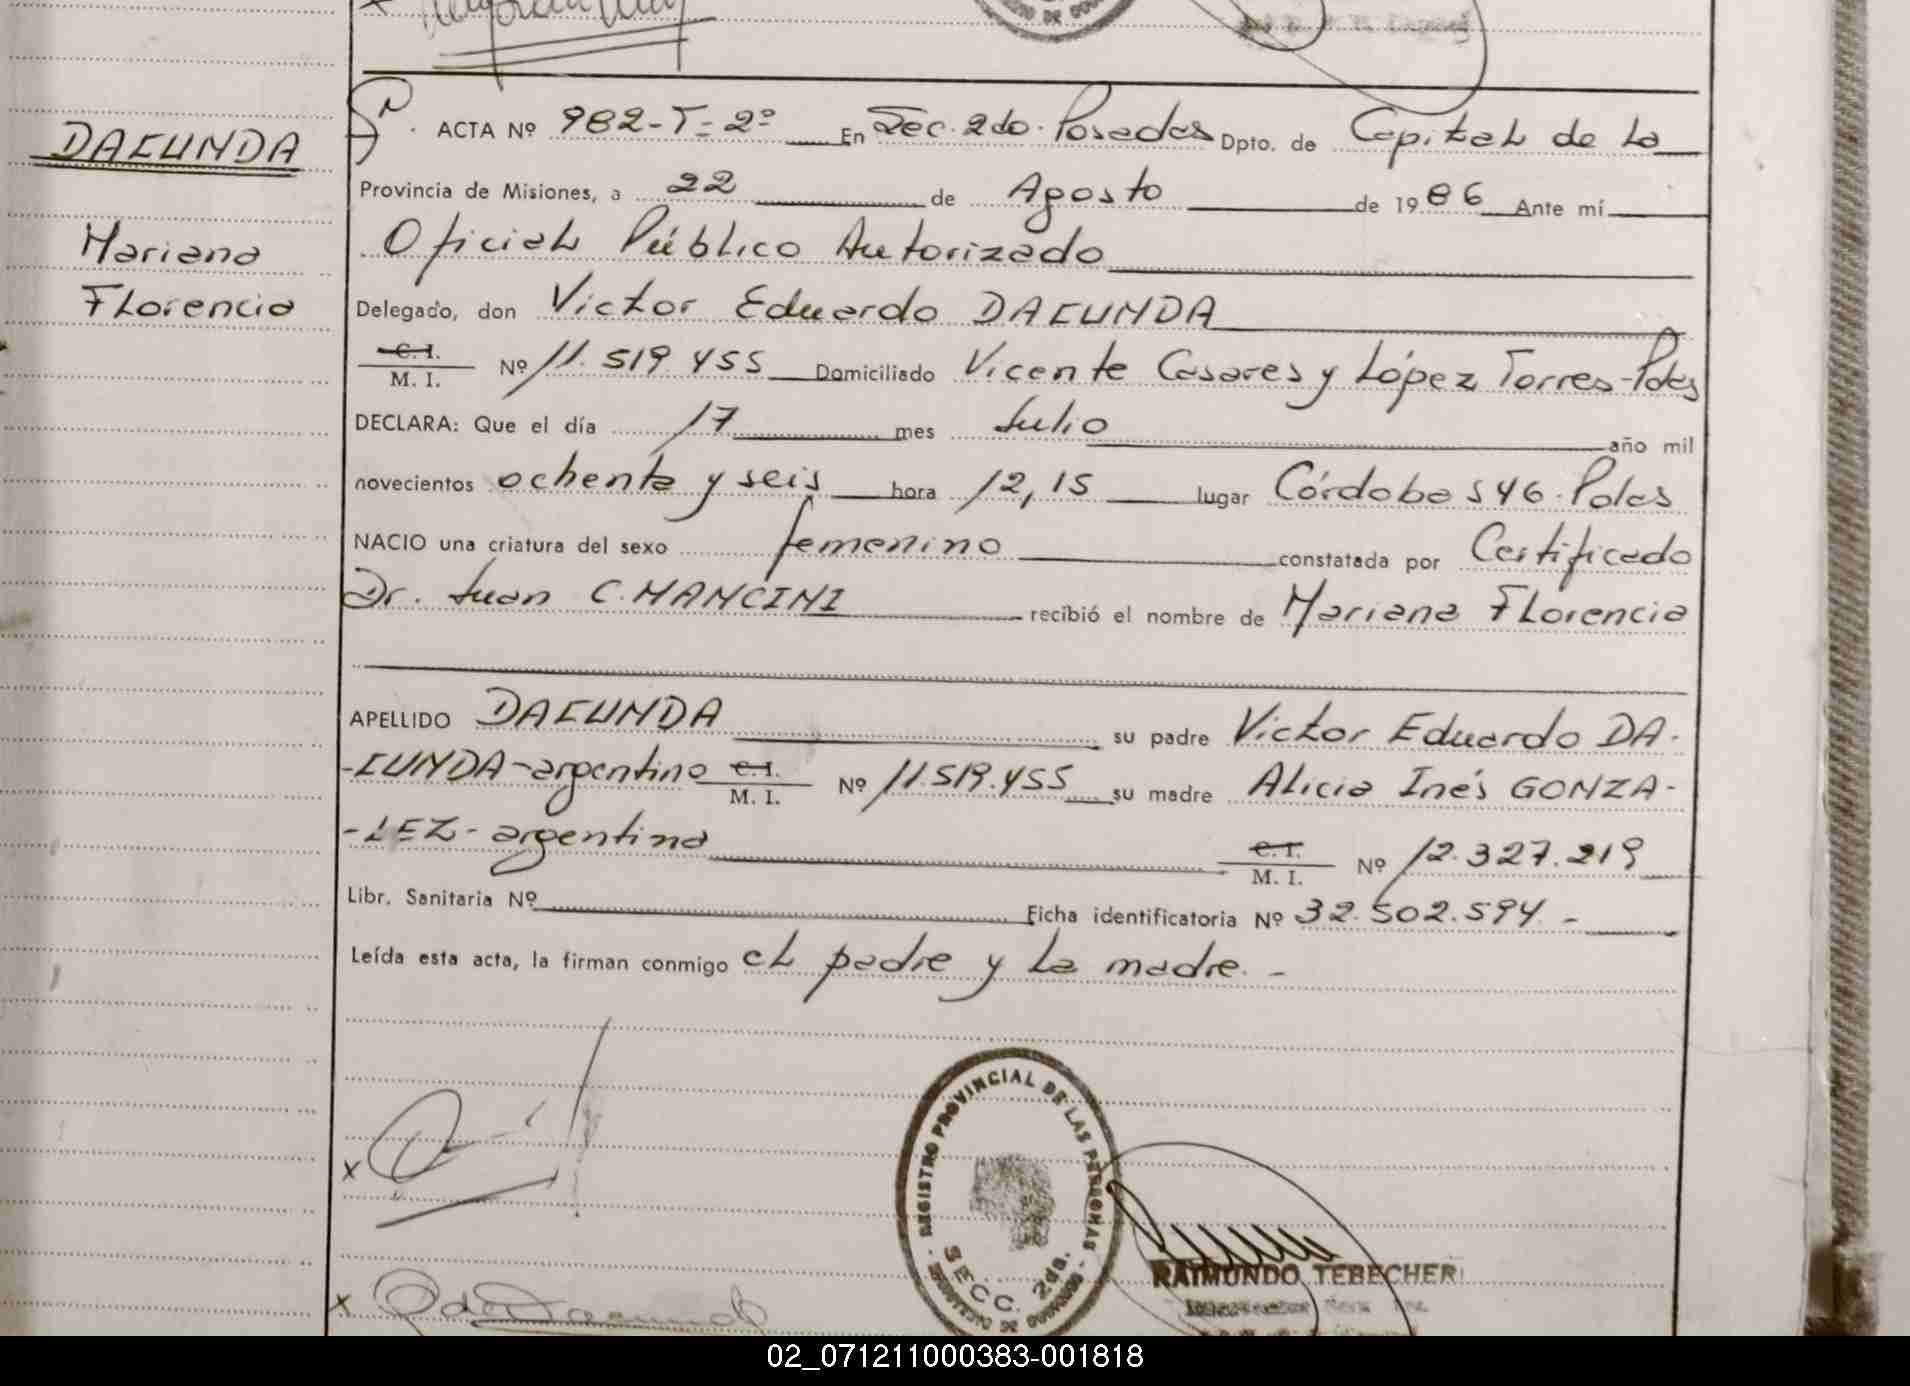 DACUNDA
Mariana
Florencia
ACTA Nº 982-T-2º En Sec. 2do. Posadas Dpto. de Capital de La
Provincia de Misiones, a 22 de Agosto de 1986 Ante mí
Oficial Público Autorizado
Delegado, don Victor Eduardo DACUNDA
C.I. / M. I. Nº 11.519.455 Domiciliado Vicente Casares y López Torres-Pdas
DECLARA: Que el día 17 mes Julio año mil
novecientos ochenta y seis hora 12,15 lugar Córdoba 546. Pdas
NACIO una criatura del sexo femenino constatada por Certificado
Dr. Juan C. MANCINI recibió el nombre de Mariana Florencia
APELLIDO DACUNDA su padre Victor Eduardo DA-
-CUNDA-argentino C.I. / M. I. Nº 11.519.455 su madre Alicia Inés GONZA-
-LEZ- argentina C.I. / M. I. Nº 12.327.219
Libr. Sanitaria Nº Ficha identificatoria Nº 32.502.594.-
Leída esta acta, la firman conmigo el padre y La madre.-
REGISTRO PROVINCIAL DE LAS PERSONAS
SECC. 2da.
x
RAIMUNDO TEBECHERI
x
02_071211000383-001818